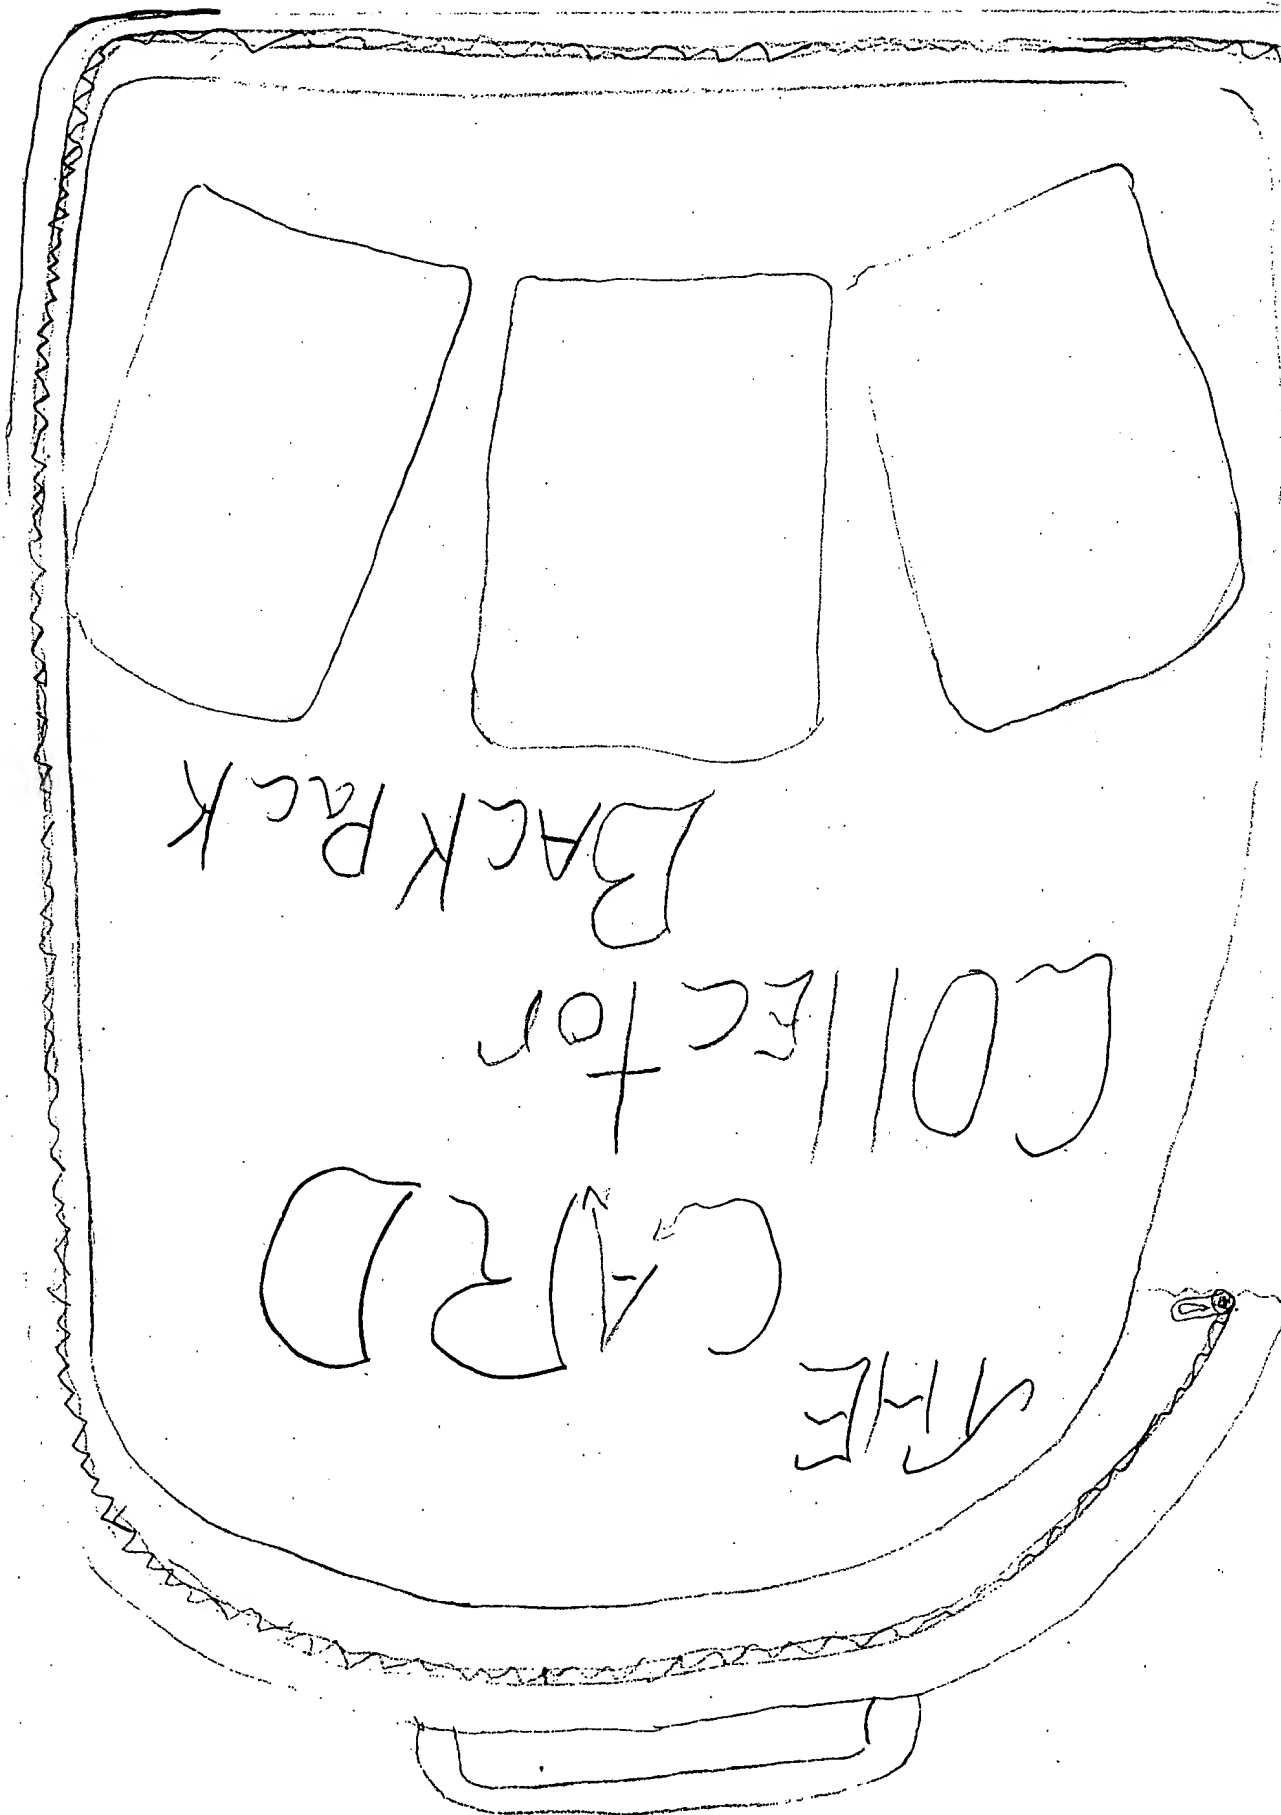 THE
CARD
COllECtor
BAcKPacK